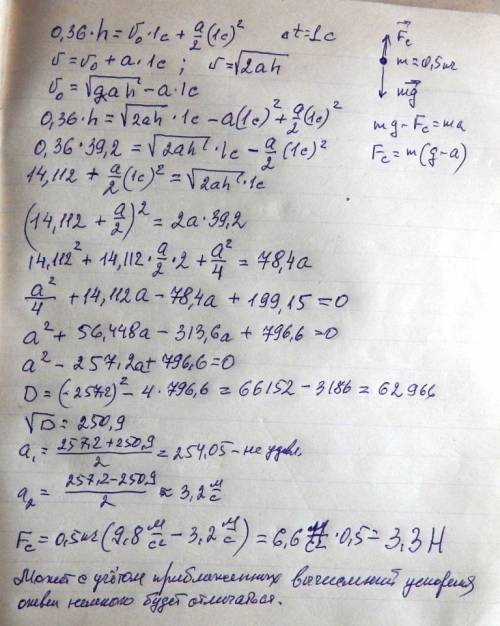 0,36·h = v₀·1c + a/2 (1c)²   Δt=1c
v = v₀ + a·1c ; v = √2ah
v₀ = √2ah - a·1c
0,36·h = √2ah · 1c - a(1c)² + a/2 (1c)²
0,36·39,2 = √2ah · 1c - a/2 (1c)²
14,112 + a/2 (1c)² = √2ah · 1c
(14,112 + a/2)² = 2a·39,2
14,112² + 14,112 · a/2 · 2 + a²/4 = 78,4a
a²/4 + 14,112a - 78,4a + 199,15 = 0
a² + 56,448a - 313,6a + 796,6 = 0
a² - 257,2a + 796,6 = 0
D = (-257,2)² - 4·796,6 = 66152 - 3186 = 62966
√D = 250,9
a₁ = (257,2 + 250,9)/2 = 254,05 - не удовл.
a₂ = (257,2 - 250,9)/2 ≈ 3,2 м/с
Fc = 0,5кг (9,8 м/с² - 3,2 м/с²) = 6,6 м/с² · 0,5 = 3,3 Н
Может с учётом приближенных вычислений ускорения
ответ немного будет отличаться.
Fc
m = 0,5кг
mg
mg - Fc = ma
Fc = m(g-a)